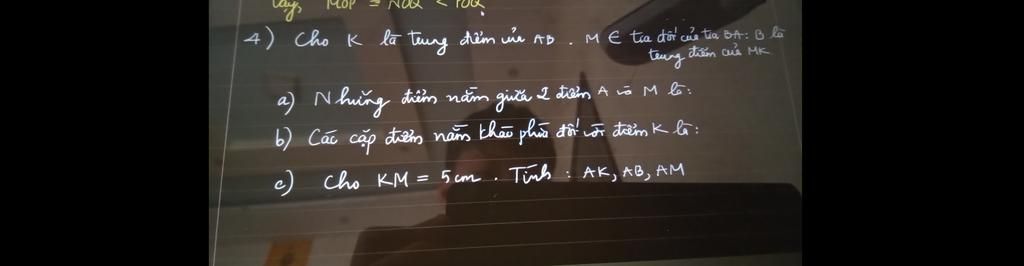 Vậy, MOP = NOQ < POQ
4) Cho K là trung điểm của AB. M ∈ tia đối của tia BA: B là
trung điểm của MK
a) Những điểm nằm giữa 2 điểm A và M là:
b) Các cặp điểm nằm khác phía đối với điểm K là:
c) Cho KM = 5cm. Tính: AK, AB, AM